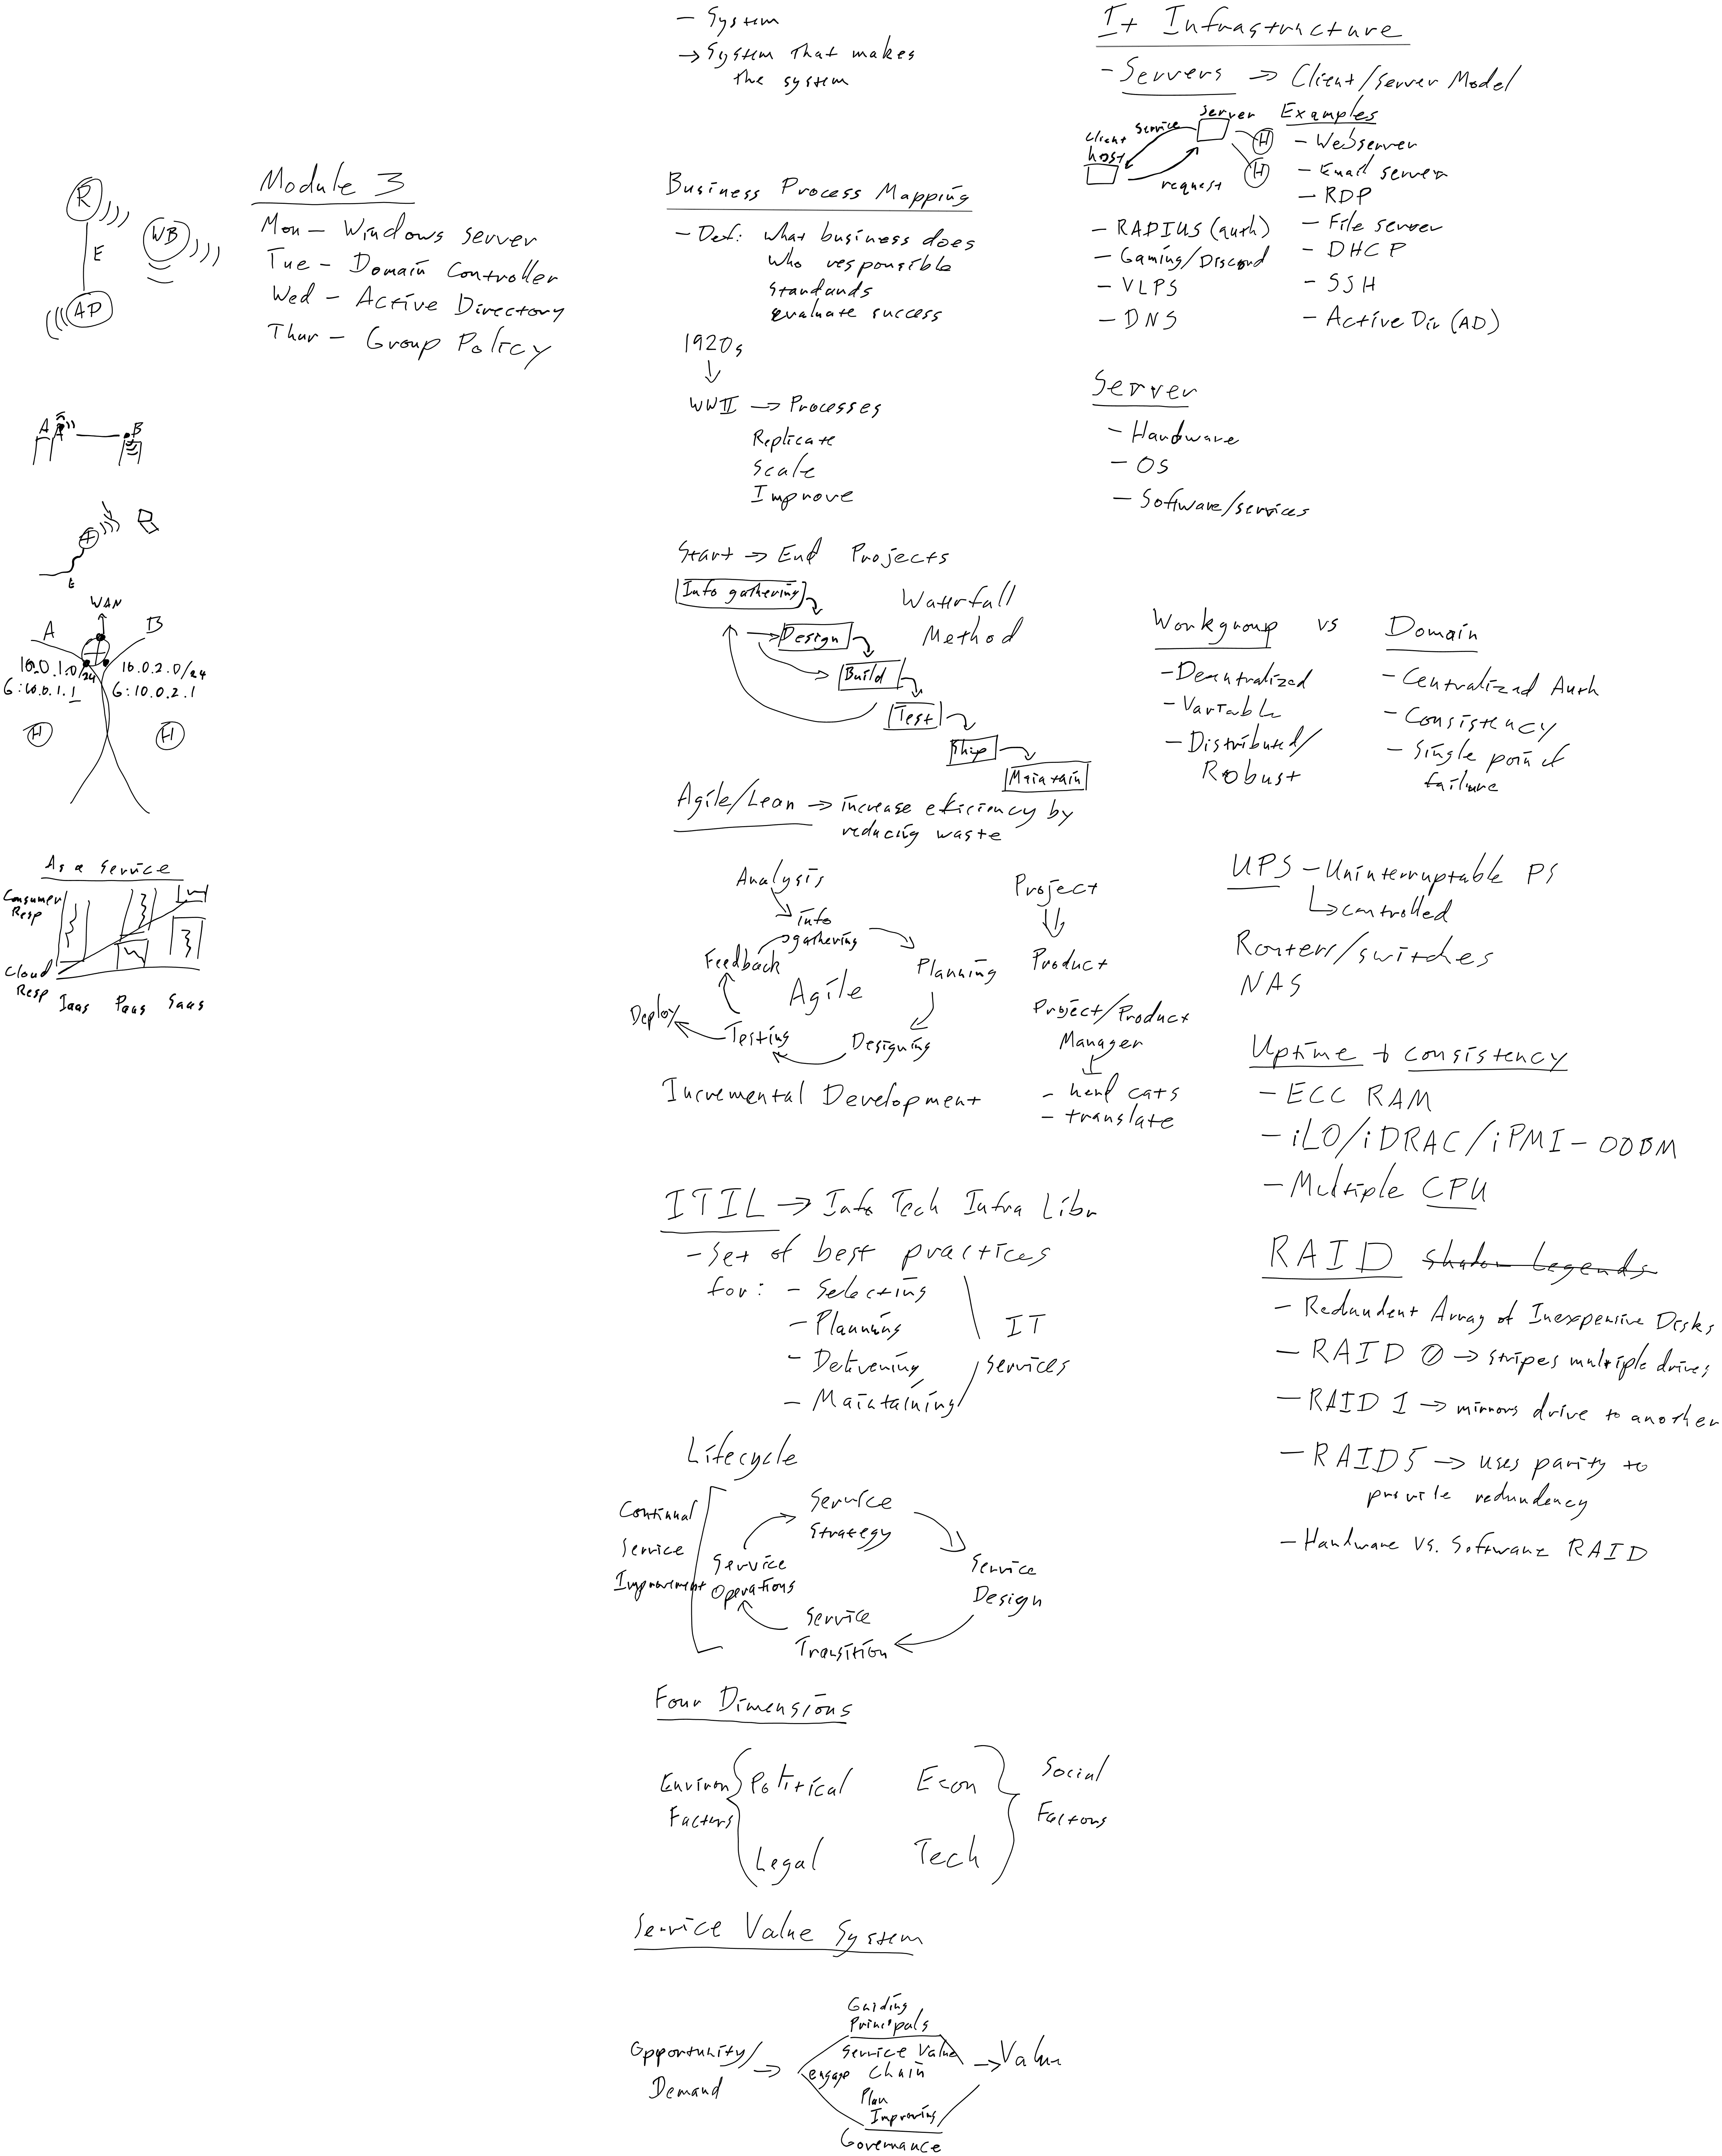 R
E
AP
WB
A
B
E
WAN
A
B
10.0.1.0/24
10.0.2.0/24
G:10.0.1.1
G:10.0.2.1
H
H
As a Service
Consumer
Resp
Cloud
Resp
Iaas Paas Saas
Module 3
Mon - Windows Server
Tue - Domain Controller
Wed - Active Directory
Thur - Group Policy
- System
→ System that makes
the system
Business Process Mapping
- Def: what business does
who responsible
standards
evaluate success
1920s
WWII → Processes
Replicate
Scale
Improve
Start → End Projects
Info gathering
Waterfall
Method
Design
Build
Test
Ship
Maintain
Agile/Lean → increase eficiency by
reducing waste
Analysis
info
gathering
Feedback
Planning
Agile
Deploy
Testing
Designing
Incremental Development
Project
Product
Project/Product
Manager
- herd cats
- translate
ITIL → Info Tech Infra Libr
- Set of best practices
for: - Selecting
- Planning
- Delivering
- Maintaining
IT
services
Lifecycle
Continual
Service
Improvement
Service
Strategy
Service
Design
Service
Transition
Service
Operations
Four Dimensions
Environ
Factors
Political
Legal
Econ
Tech
Social
Factors
Service Value System
Opportunity/
Demand
Guiding
Principals
Service Value
engage Chain
Plan
Improving
Governance
→ Value
It Infrastructure
- Servers → Client/Server Model
Client
host
Service
Server
request
H
H
Examples
- Webserver
- Email server
- RDP
- File server
- DHCP
- SSH
- Active Dir (AD)
- RADIUS (auth)
- Gaming/Discord
- VLPS
- DNS
Server
- Hardware
- OS
- Software/services
Workgroup vs Domain
- Decentralized
- Variable
- Distributed/
Robust
- Centralized Auth
- Consistency
- Single point of
failure
UPS - Uninterruptable PS
↳ controlled
Routers/switches
NAS
Uptime + consistency
- ECC RAM
- iLO/iDRAC/iPMI - OOBM
- Multiple CPU
RAID Shadow Legends
- Redundent Array of Inexpensive Disks
- RAID 0 → stripes multiple drives
- RAID 1 → mirrors drive to another
- RAID5 → uses parity to
provide redundency
- Hardware vs. Software RAID